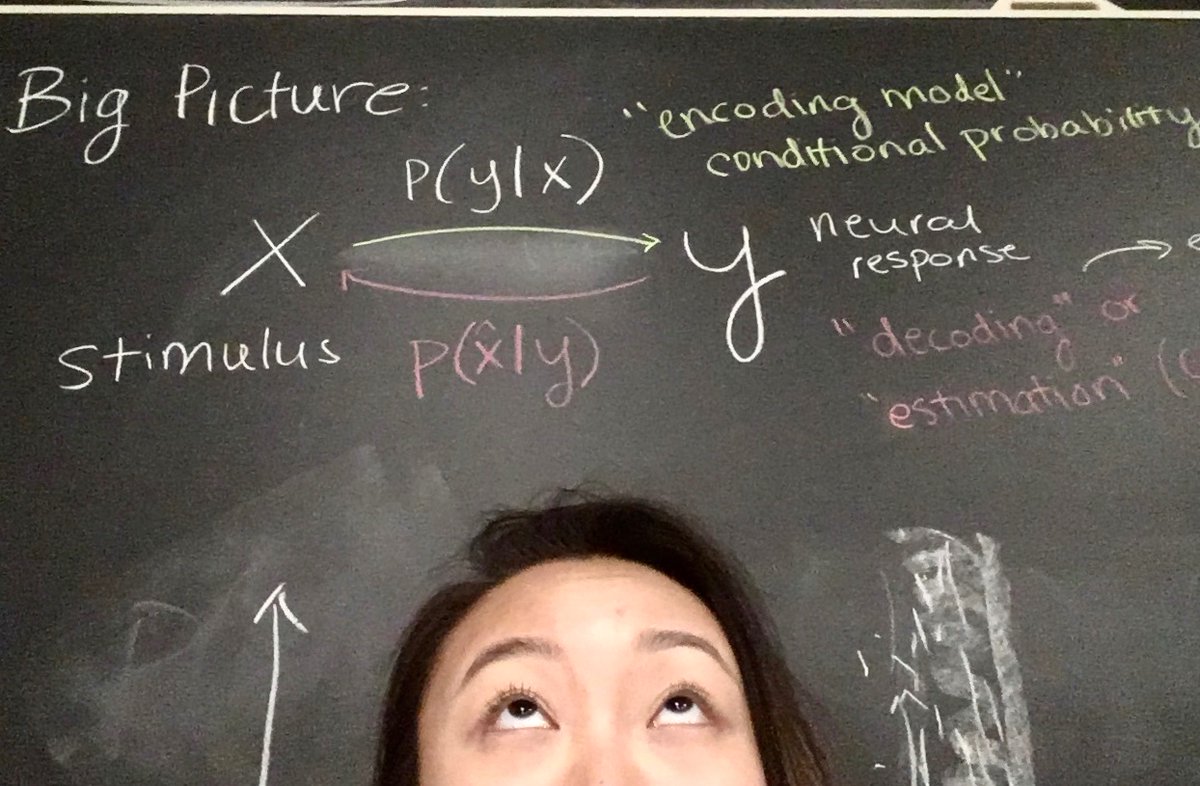 Big Picture:
"encoding model"
conditional probability
P(y|x)
X
y
neural
response
stimulus
p(x̂|y)
"decoding" or
"estimation" (